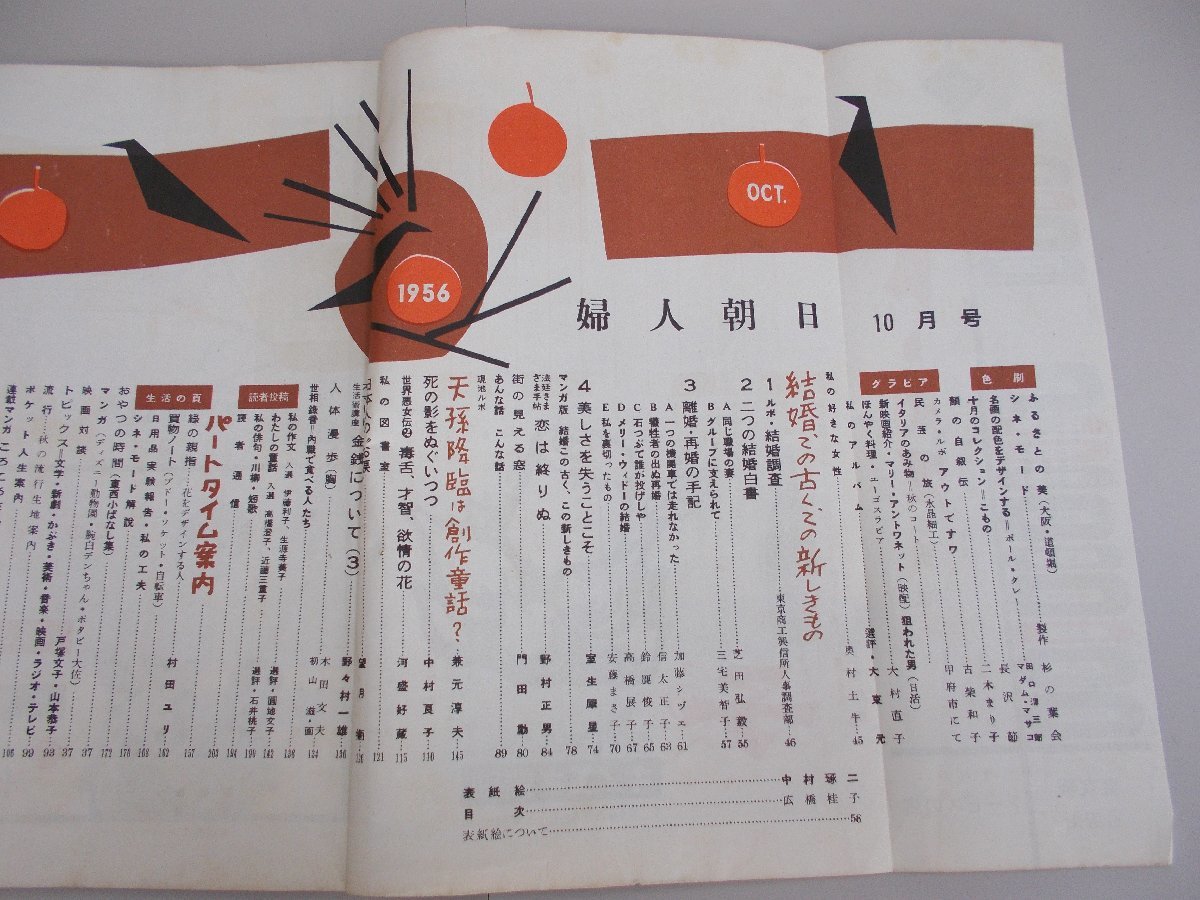 OCT.
1956
婦人朝日 10月号
色刷
ふるさとの美(大阪・道頓堀)
シネ・モード……製作 杉の葉会
名画の配色をデザインする=ポール・クレー……長沢節
十月のコレクション=こもの……二木まり子
顔の自叙伝……古柴和子
カメラ・ルポ アウトですワ……甲府市にて
グラビア
民玉の旅(水晶細工)
イタリアのあみ物―秋のコート……大村直子
新映画紹介・マリー・アントワネット(映配) 狙われた男(日活)
ほんやく料理・ユーゴスラビア……選評・大東元
私のアルバム……奥村土牛…45
私の好きな女性
結婚での古くての新しきもの
1 ルポ・結婚調査……東京商工興信所人事調査部…46
2 二つの結婚白書
A 同じ職場の妻……芝田弘毅…55
B グループに支えられて……三宅美智子…57
3 離婚・再婚の手記
A 一つの機関車では走れなかった……加藤シヅエ…61
B 犠牲者の出ぬ再婚……信太正子…63
C 石つぶて誰が投げしや……鈴鹿俊子…65
D メリー・ウィドーの結婚……高橋展子…67
E 私を裏切ったもの……安藤まさ子…70
4 美しさを失うことこそ……室生犀星…74
マンガ版 結婚この古く、この新しきもの……78
法廷さまざま手帖 恋は終りぬ……野村正男…84
街の見える窓……門田勲…80
あんな話 こんな話……89
現地ルポ
天孫降臨は創作童話?……兼元淳夫…145
死の影をぬぐいつつ……中村貢子…110
世界悪女伝② 毒舌、才智、欲情の花……河盛好蔵…115
私の図書室……121
生活術講座 金銭について(3)……野々村一雄…136
人体漫歩(胸)……木田文夫 初山滋・画
世相錄音―内職で食べる人たち……124
読者投稿
私の作文 入選 伊藤利子、生源寺美子……138
わたしの童話 入選 高塚澄子、近藤三重子……選評・圓地文子…142
私の俳句・川柳・短歌……選評・石井桃子…190
読者通信……194
パートタイム案内……203
生活の頁
緑の親指……花をデザインする人……157
買物ノート(アドー・ソケット・自転車)……村田ユリ…162
日用品実験報告・私の工夫……162
シネ・モード解説……178
おやつの時間(東西小ばなし集)……172
マンガ(ディズニー動物園・腕白デンちゃん・ポタビー大佐)
映画対談……37
トピックス=文学・新劇・かぶき・美術・音楽・映画・ラジオ・テレビ……戸塚文子・山本恭子…37
流行……秋の流行生地案内……93
ポケット人生案内……99
連載マンガ こころころ……106
表紙絵……中村琢二
目次……広橋桂子
表紙絵について……58